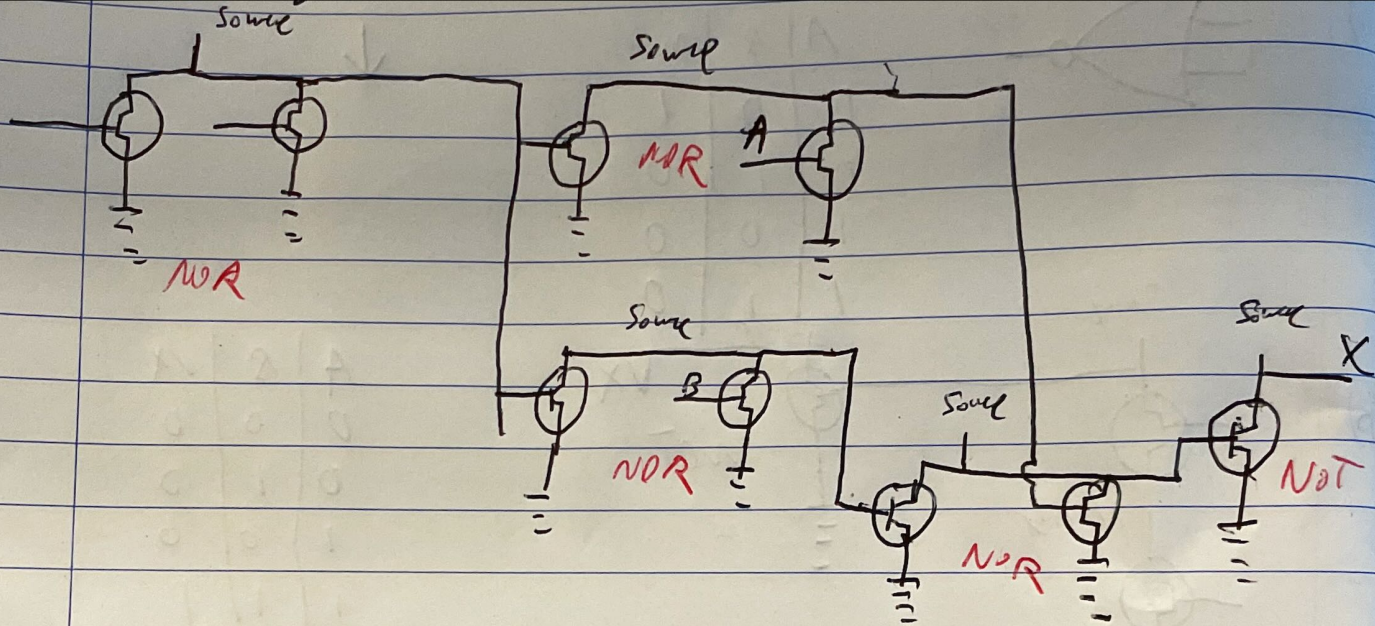 Source
Source
A
NOR
NOR
Source
B
NOR
Source
Source
X
NOT
NOR